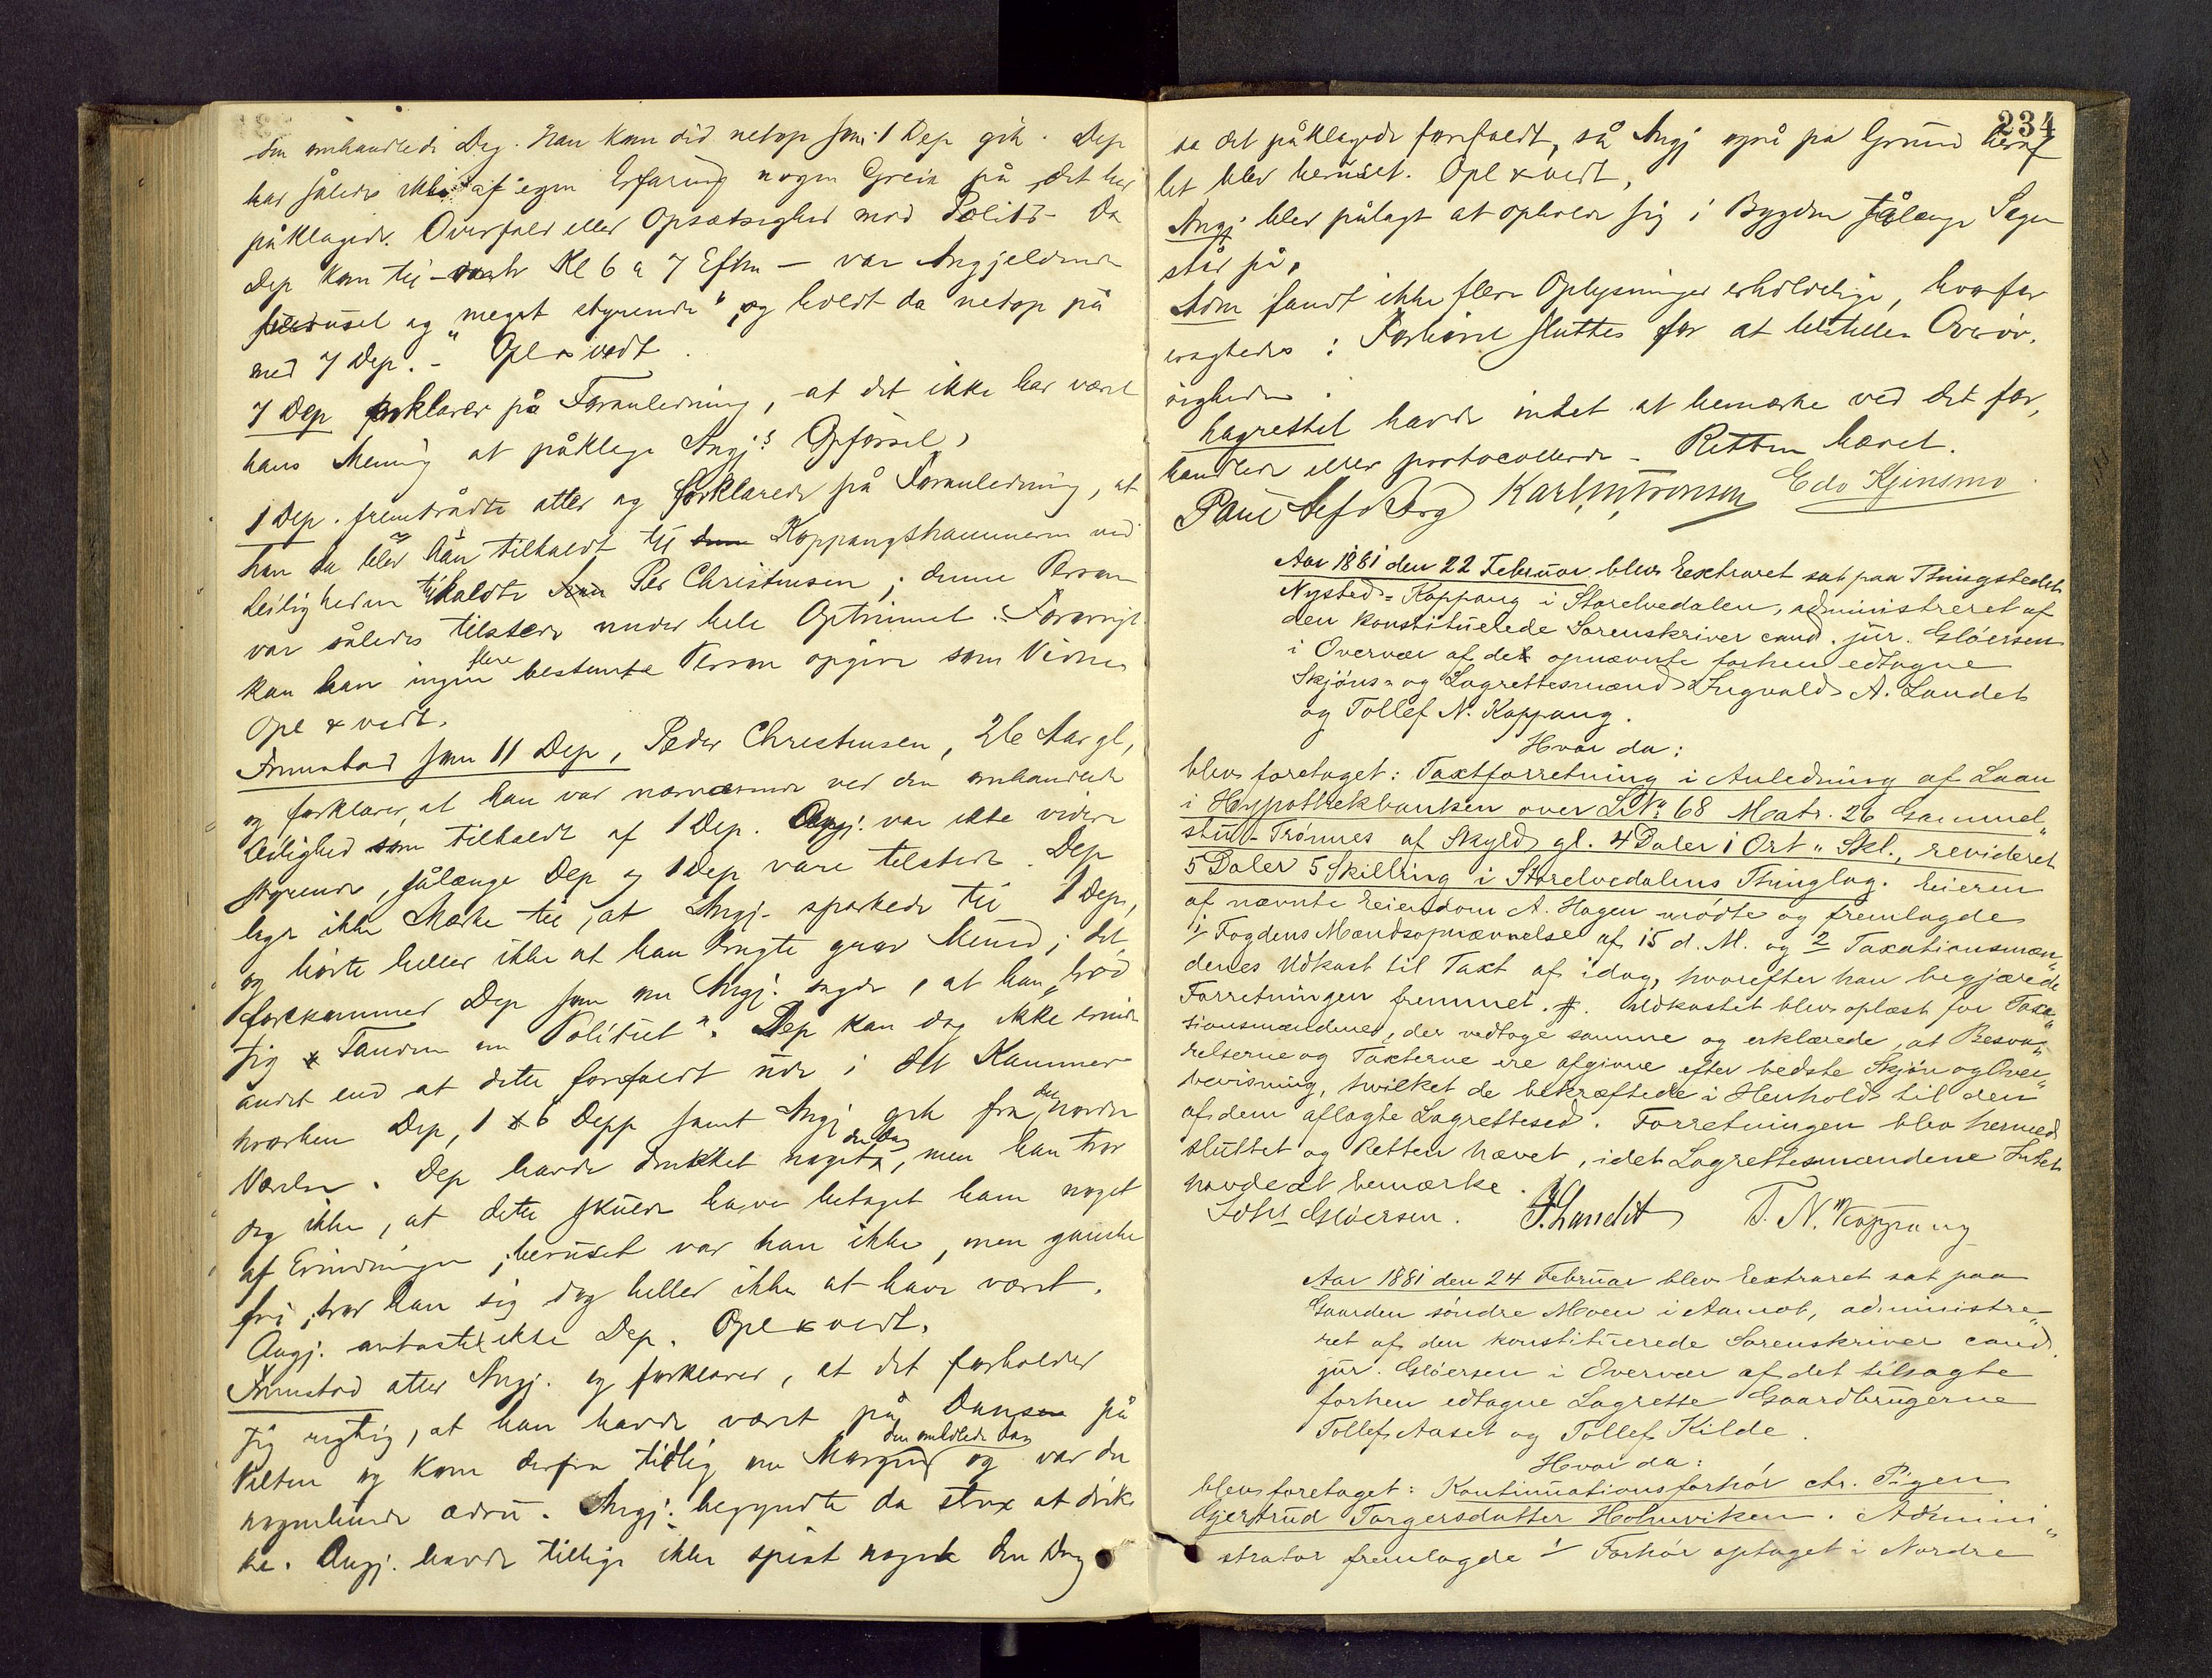 den omhandlede Dag. Han kom did netop som 1 Dep gik. Dep
har således ikke af egen Erfaring nogen Greie på det her
påklagede Overfald eller Opsætsighed mod Politi - Da
Dep kom til - Kl 6 a 7 Efterm - var Angjeldende
beruset og "meget styrende" og holdt da netop på
med 7 Dep. - Opl & vedt.
7 Dep forklarer på Foranledning, at det ikke har været
hans Mening at påklage Angj:s Opførsel,
1 Dep. fremtrådte atter og forklarede på Foranledning, at
han da blev han tilkaldt til Koppangskammeren ved
Leiligheden tilkaldte Per Christensen; denne Person
var således tilstede under hele Optrinnet. Forøvrigt
kan han ingen flere bestemte Person opgive som Vidner
Opl & vedt.
Fremstod som 11 Dep, Peder Christensen, 26 Aar gl,
og forklarer, at han var nærværende ved den omhandlede
Leilighed som tilkaldt af 1 Dep. Angj. var ikke videre
styrende, sålænge Dep og 1 Dep vare tilstede. Dep
lagde ikke Mærke til, at Angj. sparkede til 1 Dep,
og hørte heller ikke at han brugte grov Mund; det
forekommer Dep som om Angj. sagde, at han "brød
sig Fanden om Politiet". Dep kan dog ikke erindre
andet end at dette forefaldt ude i det Kammer
hvorhen Dep, 1 & 6 Depp samt Angj gik fra det nordre
Værelse. Dep havde drukket noget den Dag, men han tror
dog ikke, at dette skulde have betaget ham noget
af Erindringen; beruset var han ikke, men ganske
fri, tror han sig dog heller ikke at have været.
Angj. antaster ikke Dep. Opl & vedt.
Fremstod atter Angj. og forklarer, at det forholder
sig rigtig, at han havde været på Dansen på
Valten og kom derfra tidlig om Morgenen den omhdlede Dag og var da
nogenlunde ædru. Angj. begyndte da strax at drik-
ke. Angj. havde tillige ikke spist noget den Dag
234
da det påklagede forefaldt, så Angj også på Grund heraf
let blev beruset. Opl & vedt,
Angj blev pålagt at opholde sig i Bygden sålænge Sagen
står på,
Adm fandt ikke flere Oplysninger erholdelige, hvorfor
eragtedes: Forhøret sluttes for at tilstilles Overøv.
righeden.
Lagrettet havde intet at bemærke ved det for,
handlede eller protocollerede - Retten hævet.
Paul Karl M. Tronsen Edv Kjinsmo
Aar 1881 den 22 Februar blev Extraret sat paa Thingstedet
Nysted-Koppang i Storelvedalen, administreret af
den konstituerede Sorenskriver cand. jur. Gløersen
i Overvær af det opnævnte forhen edtagne
Skjøns- og Lagrettesmænd Ingvald A. Landet
og Tollef N. Koppang.
Hvor da:
blev foretaget: Taxtforretning i Anledning af Laan
i Hypothekbanken over LNo 68 Matr. 26 Gammel"
stu-Trønnes af Skyld gl. 4 Daler 1 Ort " Skl., revideret
5 Daler 5 Skilling i Storelvedalens Thinglag. Eieren
af nævnte Eiendom A. Hagen mødte og fremlagde
1/ Fogdens Mandsopnævnelse af 15 d. M. og 2 Taxationsmæn"
denes Udkast til Taxt af idag, hvorefter han begjærede
Forretningen fremmet. Udkastet blev oplæst for Taxa"
tionsmændene, der vedtoge samme og erklærede, at Besva"
relserne og Taxterne ere afgivne efter bedste Skjøn og Over"
bevisning, hvilket de bekræftede i Henhold til den
af dem aflagte Lagrettesed. Forretningen blev hermed
sluttet og Retten hævet, idet Lagrettesmændene Intet
havde at bemærke.
Johs Gløersen. I. Landet T. N. Koppang
Aar 1881 den 24 Februar blev Extraret sat paa
Gaarden søndre Moen i Aamot, administre"
ret af den konstituerede Sorenskriver cand.
jur. Gløersen i Overvær af det tilsagte
forhen edtagne Lagrette Gaardbrugerne
Tollef Aaset og Tollef Kilde.
Hvor da:
blev foretaget: Kontinuationsforhør ctr. Pigen
Gjertrud Torgersdatter Holmviken. Admini"
strator fremlagde 1/ Forhør optaget i Nordre